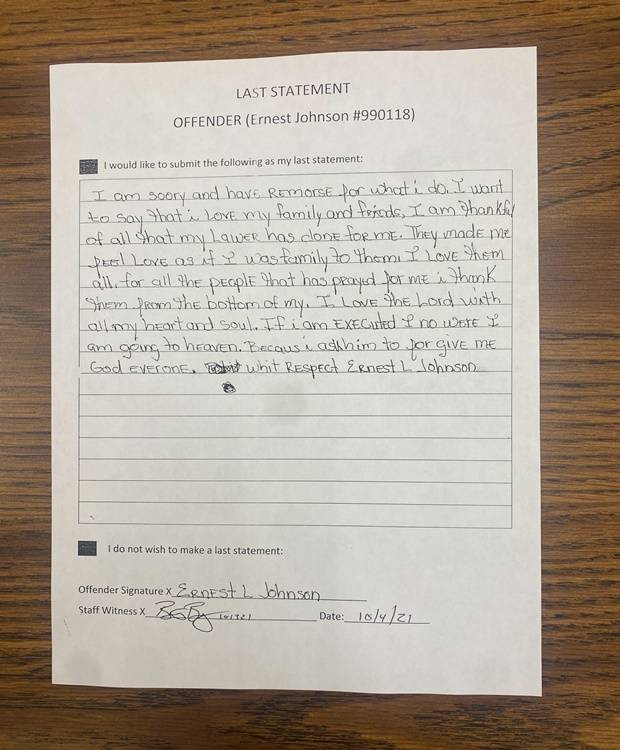 LAST STATEMENT
OFFENDER (Ernest Johnson #990118)
I would like to submit the following as my last statement:
I am soory and have REMORSE for what i do. I want
to say that i LOVE my family and friends. I am thankful
of all that my LawER has done for ME. They made me
feel LOVE as if I was family to them. I LOVE them
all. for all the peoplE that has prayed for ME i thank
them from the bottom of my. I LOVE the Lord with
all my heart and soul. If i am EXECuted I no WERE I
am going to heaven. Becaus i ask him to forgive ME
God everonE. whit RESPEct ERnESt L Johnson
I do not wish to make a last statement:
Offender Signature X ERnESt L Johnson
Staff Witness X Date: 10/4/21